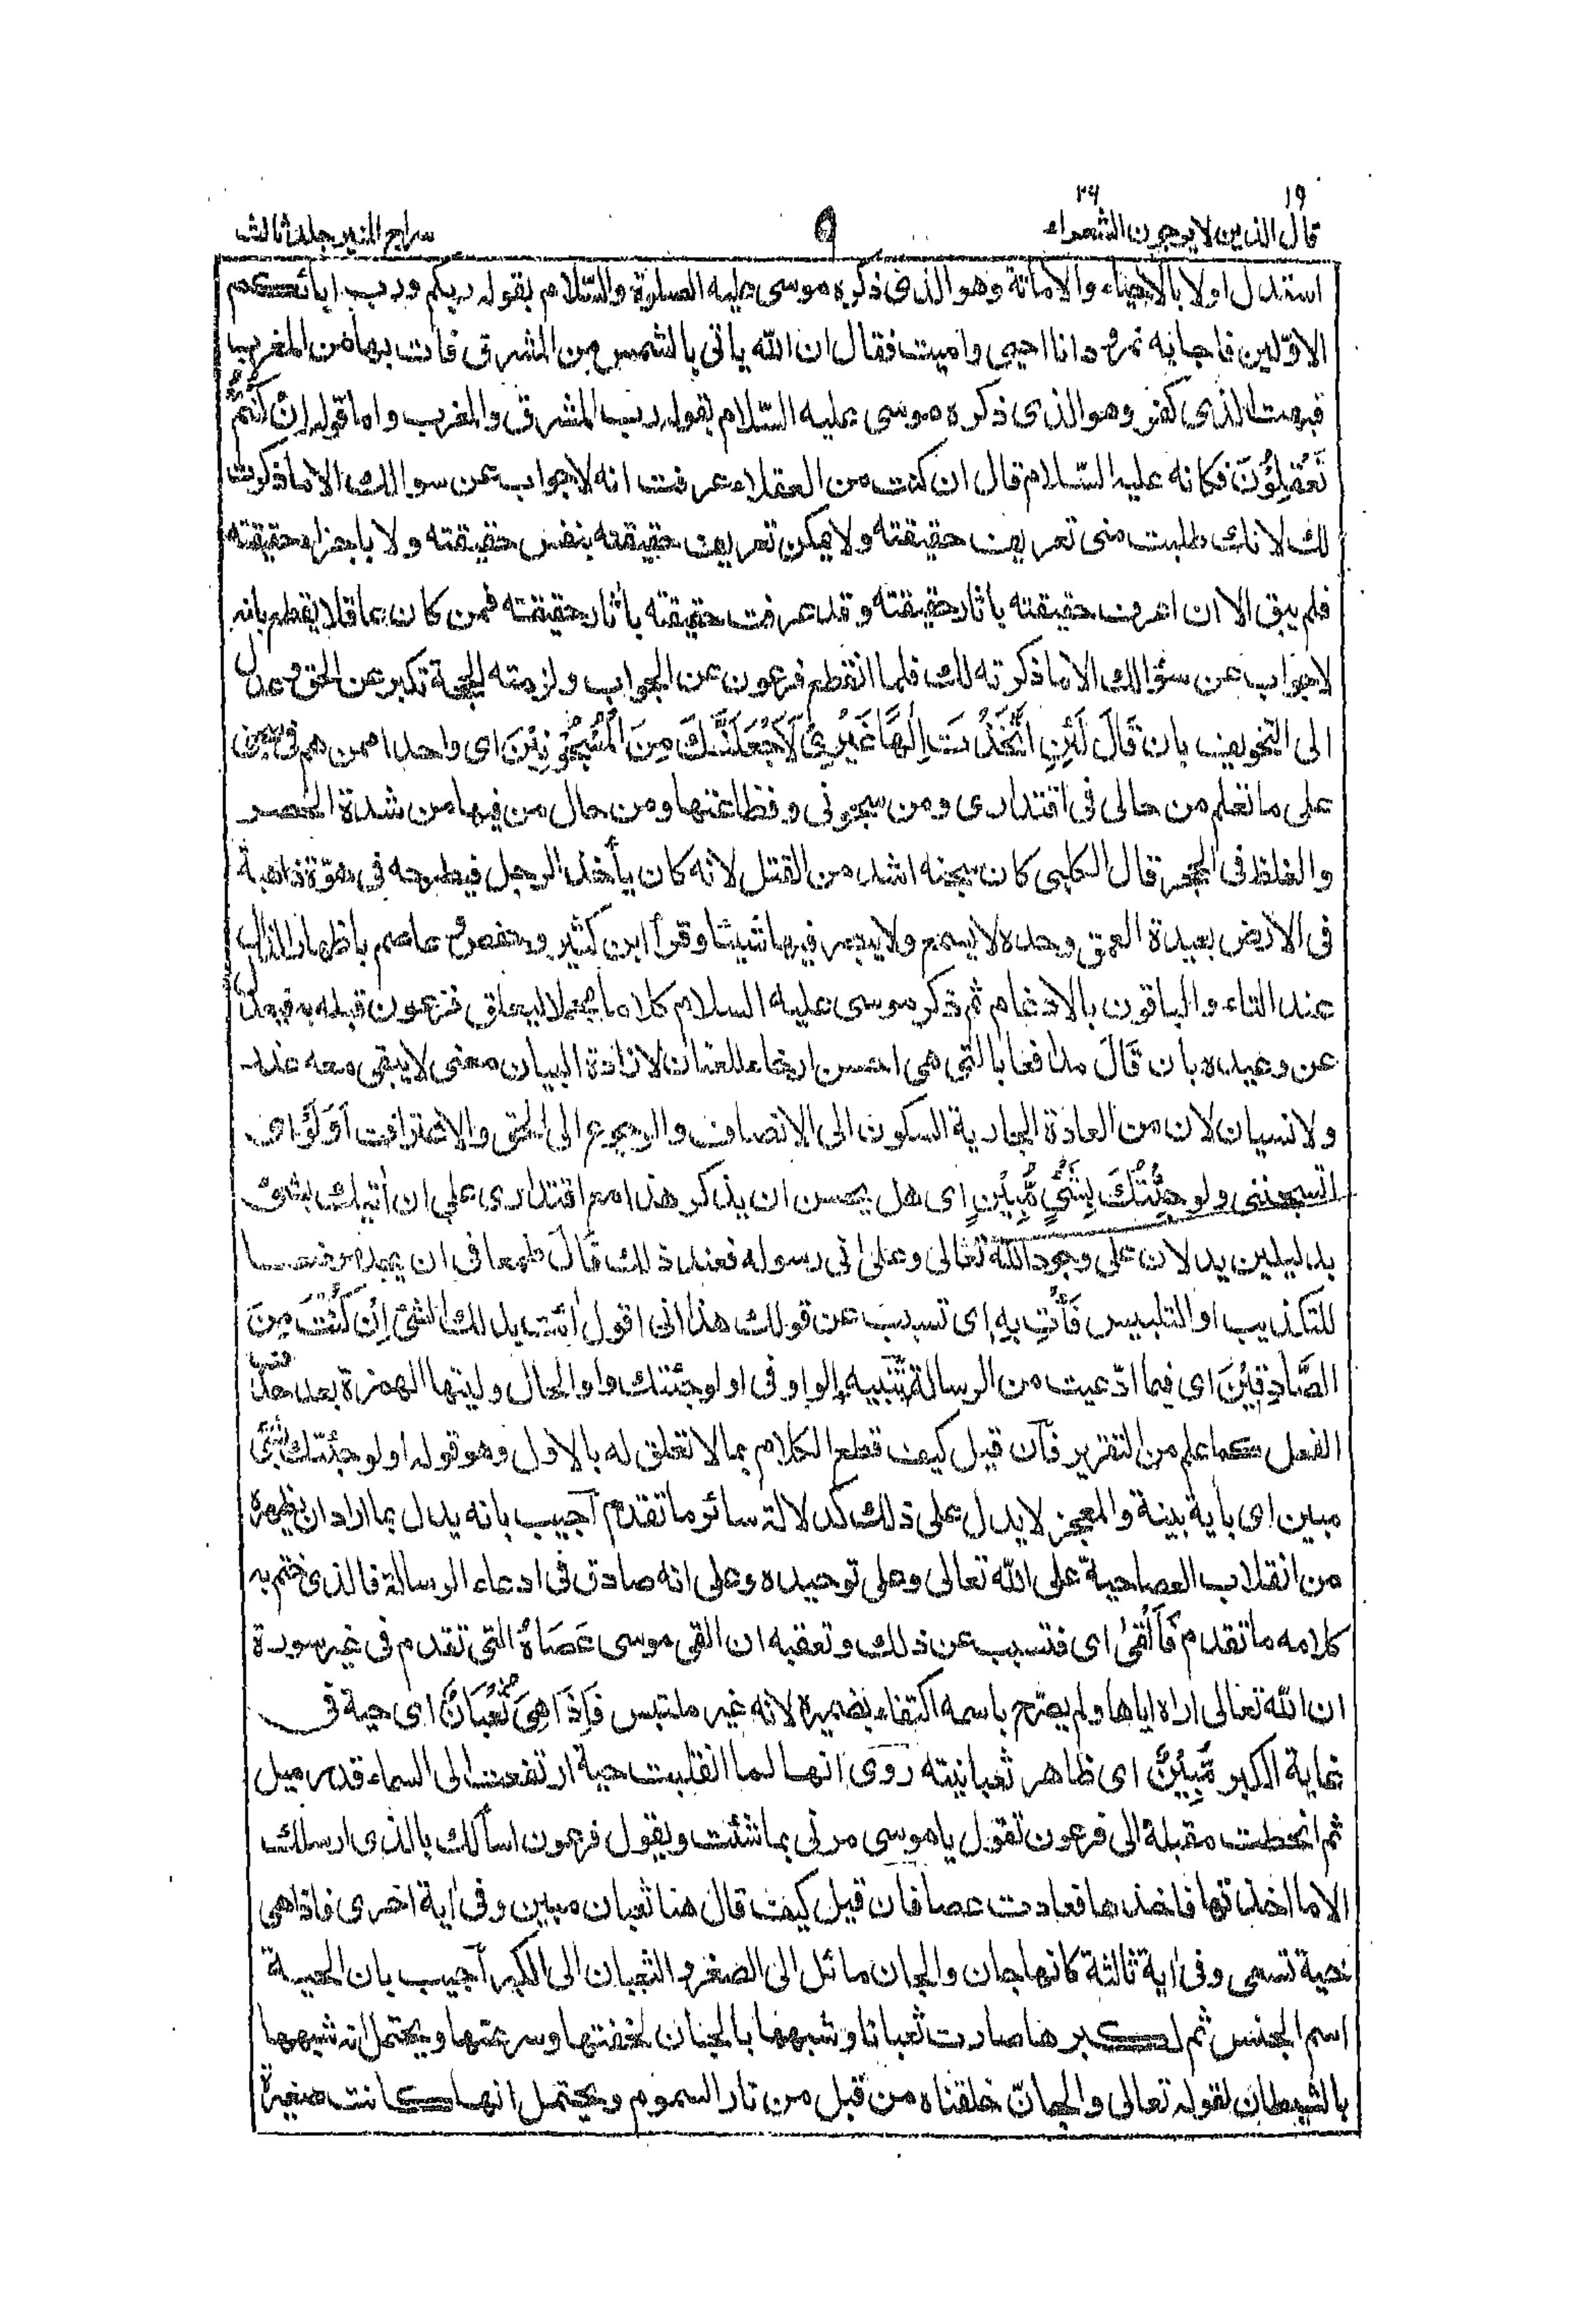 ١٩
٢٦
قال الذين لا يرجون الشعراء
٩
سراج المنير جلد ثالث
استدل اولا بالاحياء والاماتة وهو الذى ذكره موسى عليه الصلوة والسّلام بقوله ربكم ورب ابائكم
الاوّلين فاجابه نمرود انا احيى واميت فقال ان الله ياتى بالشمس من المشرق فات بها من المغرب
فبهت الذى كفر وهو الذى ذكره موسى عليه السّلام بقوله رب المشرق والمغرب واما قوله اِنْ كُنْتُمْ
تَعْقِلُوْنَ فكانه عليه السّلام قال ان كنت من العقلاء عرفت انه لا جواب عن سوالك الا ما ذكرت
لك لانك طلبت منى تعريف حقيقته ولا يمكن تعريف حقيقته بنفس حقيقته ولا باجزاء حقيقته
فلم يبق الا ان اعرف حقيقته باثار حقيقته وقد عرفت حقيقته باثار حقيقته فمن كان عاقلا يقطع بانه
لا جواب عن سؤالك الا ما ذكرته لك فلما انقطع فرعون عن الجواب ولزمته الحجة تكبر عن الحق وعدل
الى التخويف بان قَالَ لَئِنِ اتَّخَذْتَ اِلٰهًا غَيْرِىْ لَاَجْعَلَنَّكَ مِنَ الْمَسْجُوْنِيْنَ اى واحدا ممن هم فى سجنى
على ما تعلم من حالى فى اقتدارى ومن سجونى وفظاعتها ومن حال من فيها من شدة الحصر
والغلظ فى الحجر قال الكلبى كان سجنه اشد من القتل لانه كان يأخذ الرجل فيطرحه فى هوّة ذاهبة
فى الارض بعيدة العمق وحده لا يسمع ولا يبصر فيها شيئا وقرأ ابن كثير وحفص عن عاصم باظهار الذال
عند التاء والباقون بالادغام ثم ذكر موسى عليه السلام كلاما مجملا ليعلق فرعون قبله به فيعدل
عن وعيده بان قَالَ مدافعا بالتى هى احسن ارخاء للعنان لارادة البيان معنى لا يبقى معه عذر
ولا نسيان لان من العادة الجارية السكون الى الانصاف والرجوع الى الحق والاعتراف اَوَلَوْ اى
اتسجننى ولو جِئْتُكَ بِشَىْءٍ مُّبِيْنٍ اى هل يحسن ان يذكر هذا مع اقتدارى على ان أتيك بشئ
بدليلين يدلان على وجود الله تعالى وعلى انى رسوله فعند ذلك قَالَ طمعا فى ان يجد موضعا
للتكذيب او التلبيس فَأْتِ بِهٖ اى تسبب عن قولك هذا انى اقول ائت بذلك الشئ اِنْ كُنْتَ مِنَ
الصَّادِقِيْنَ اى فيما ادّعيت من الرسالة تنبيه الواو فى اولو جئتك واو الحال وليتها الهمزة بعد حذف
الفعل كما علم من التقرير فان قيل كيف قطع الكلام بما لا تعلق له بالاول وهو قوله اولو جئتك بشئ
مبين اى بأية بينة والمعجز لا يدل على ذلك كدلالة سائر ما تقدم أجيب بانه يدل بما اراد ان يظهره
من انقلاب العصا حية على الله تعالى وعلى توحيده وعلى انه صادق فى ادعاء الرسالة فالذى ختم به
كلامه ما تقدم فَاَلْقٰى اى فتسبب عن ذلك وتعقبه ان القى موسى عَصَاهُ التى تقدم فى غير سورة
ان الله تعالى اراه اياها ولم يصرّح باسمه اكتفاء بضميره لانه غير ملتبس فَاِذَا هِىَ ثُعْبَانٌ اى حية فى
غاية الكبر مُّبِيْنٌ اى ظاهر ثعبانيته روى انها لما انقلبت حية ارتفعت الى السماء قدر ميل
ثم انحطت مقبلة الى فرعون تقول يا موسى مرنى بما شئت ويقول فرعون اسألك بالذى ارسلك
الا ما اخذتها فاخذها فعادت عصا فان قيل كيف قال هنا ثعبان مبين وفى اية اخرى فاذا هى
حية تسعى وفى اية ثالثة كانها جان والجان مائل الى الصغر والثعبان الى الكبر أجيب بان الحية
اسم الجنس ثم لكبرها صارت ثعبانا وشبهها بالجان لخفتها وسرعتها ويحتمل انه شبهها
بالشيطان لقوله تعالى والجانّ خلقناه من قبل من نار السموم ويحتمل انها كانت صغيرة